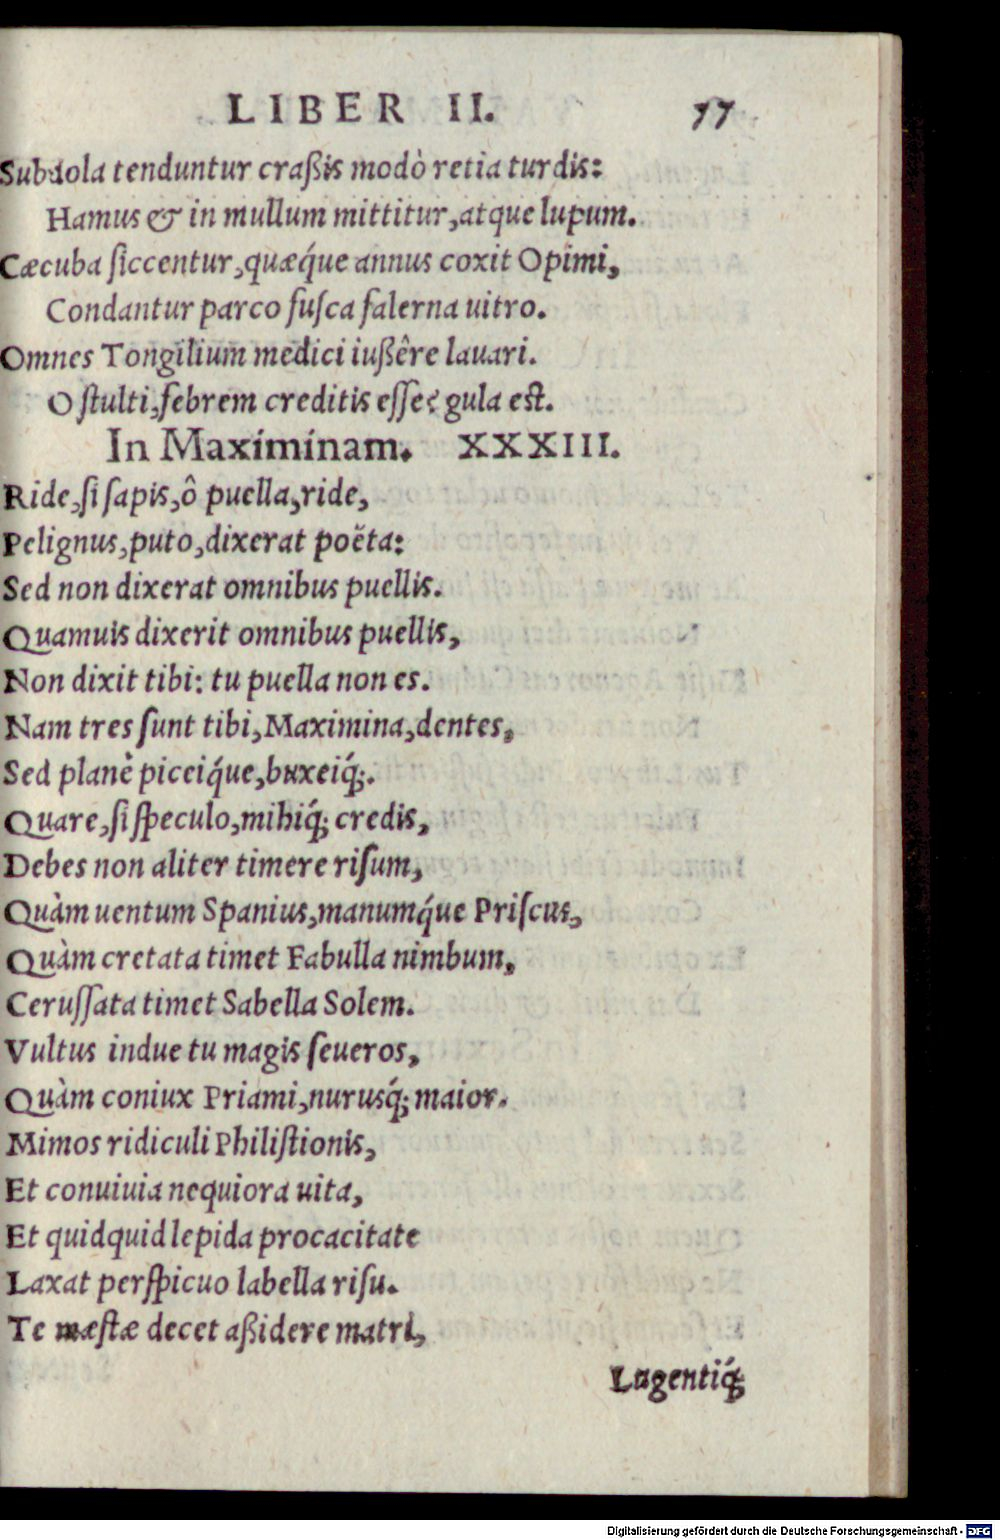 LIBER II. 57
Subdola tenduntur craßis modò retia turdis:
Hamus & in mullum mittitur, atque lupum.
Cæcuba ſiccentur, quæq́ue annus coxit Opimi,
Condantur parco fuſca falerna uitro.
Omnes Tongilium medici iußêre lauari.
O ſtulti, febrem creditis eſſe? gula eſt.
In Maximinam. XXXIII.
Ride, ſi ſapis, ô puella, ride,
Pelignus, puto, dixerat poëta:
Sed non dixerat omnibus puellis.
Quamuis dixerit omnibus puellis,
Non dixit tibi: tu puella non es.
Nam tres ſunt tibi, Maximina, dentes,
Sed planè piceiq́ue, buxeiq́;.
Quare, ſi ſpeculo, mihiq́; credis,
Debes non aliter timere riſum,
Quàm uentum Spanius, manumq́ue Priſcus,
Quàm cretata timet Fabulla nimbum,
Ceruſſata timet Sabella Solem.
Vultus indue tu magis ſeueros,
Quàm coniux Priami, nurusq́; maior.
Mimos ridiculi Philiſtionis,
Et conuiuia nequiora uita,
Et quidquid lepida procacitate
Laxat perſpicuo labella riſu.
Te mæſtæ decet aßidere matri,
Lugentiq́;
Digitalisierung gefördert durch die Deutsche Forschungsgemeinschaft - DFG